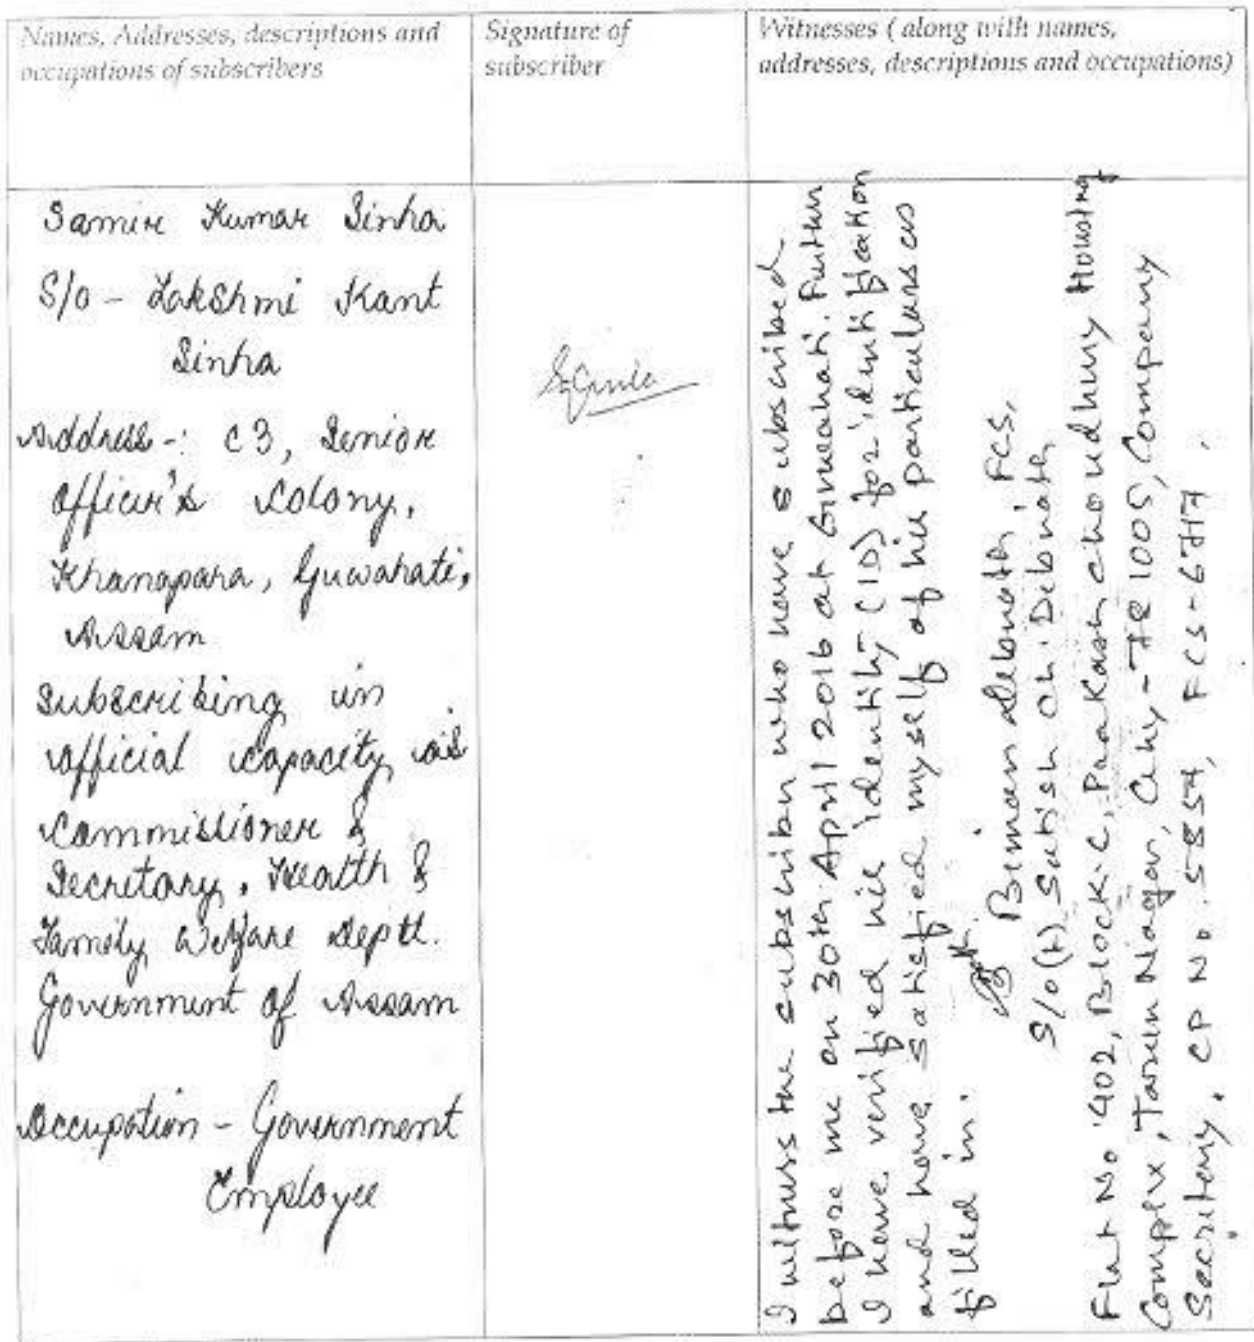 Names, Addresses, descriptions and
occupations of subscribers
Signature of
subscriber
Witnesses ( along with names,
addresses, descriptions and occupations)
Samir Kumar Sinha
S/o - Lakshmi Kant
Sinha
Address -: C3, Senior
Officer's Colony,
Khanapara, Guwahati,
Assam
Subscribing in
official capacity as
Commissioner &
Secretary, Health &
Family Welfare Deptt.
Government of Assam
Occupation - Government
Employee
I witness the subscriber who have subscribed
before me on 30th April 2016 at Guwahati. Further
I have verified his identity (ID) for identification
and have satisfied myself of his particulars as
filled in.
Biman Debnath, FCS,
S/o (L) Satish Ch. Debnath
Flat No 402, Block-C, Prakash Choudhury Housing
Complex, Tarun Nagar, Ghy - 781005, Company
Secretary, CP No. 5857, FCS-6717.